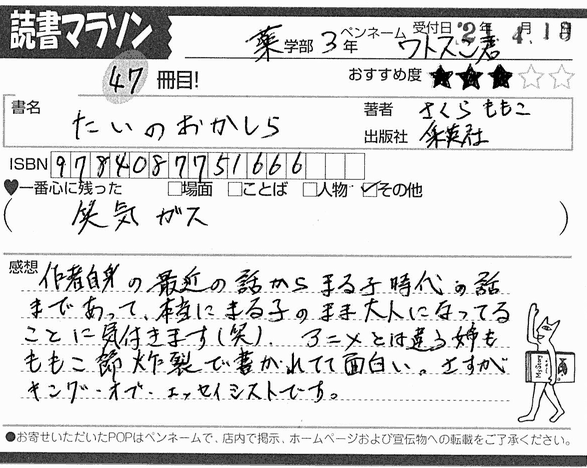 読書マラソン
薬学部3年 ペンネーム ワトスン君 受付日 '21年 4月 18日
47冊目! おすすめ度 ★★★☆☆
書名 たいのおかしら
著者 さくらももこ
出版社 集英社
ISBN 9784087751666
♥一番心に残った □場面 □ことば □人物 ☑その他
(笑気ガス)
感想 作者自身の最近の話からまる子時代の話
まであって、本当にまる子のまま大人になってる
ことに気付きます(笑)。アニメとは違う姉も
ももこ節炸裂で書かれてて面白い。さすが
キング・オブ・エッセイシストです。
●お寄せいただいたPOPはペンネームで、店内で掲示、ホームページおよび宣伝物への転載をご了承ください。